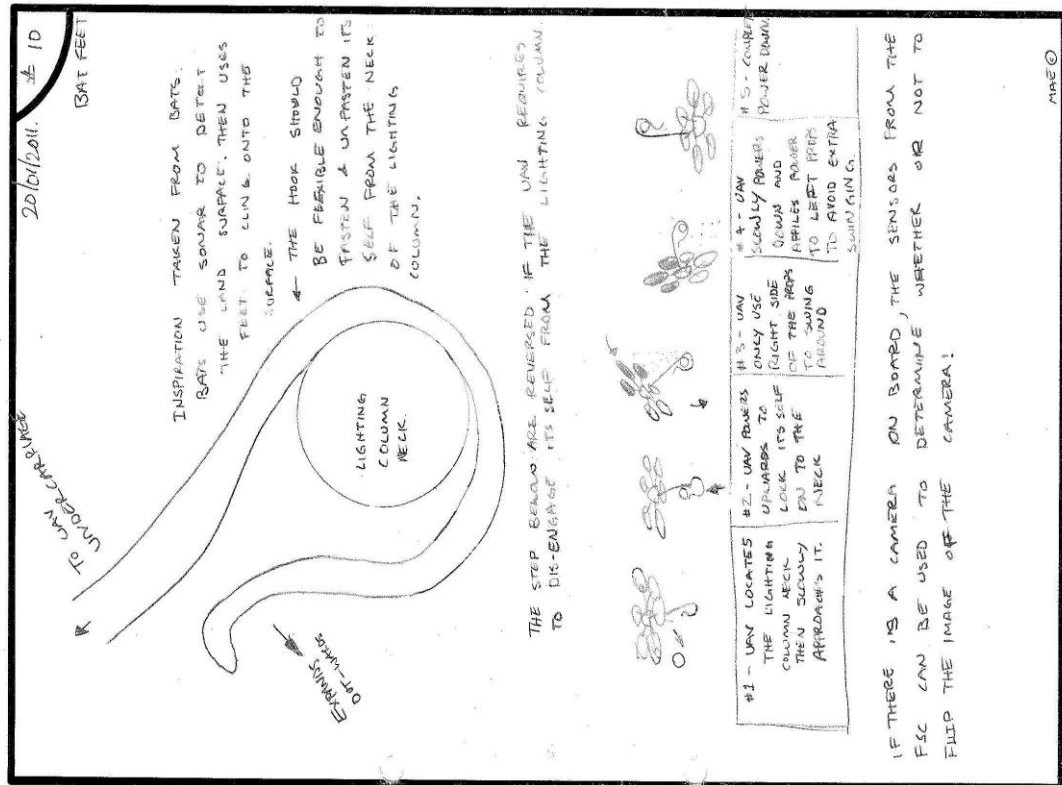 20/01/2011. # 10
BAT FEET
INSPIRATION TAKEN FROM BATS.
BATS USE SONAR TO DETECT
THE LAND SURFACE. THEN USES
FEET TO CLING ONTO THE
SURFACE.
← THE HOOK SHOULD
BE FLEXIBLE ENOUGH TO
FASTEN & UNFASTEN ITS
SELF FROM THE NECK
OF THE LIGHTING
COLUMN.
TO UAV
UNDERCARRIAGE
LIGHTING
COLUMN
NECK.
EXPANDS
OUT-WARDS
THE STEP BELOW ARE REVERSED IF THE UAV REQUIRES
TO DIS-ENGAGE ITS SELF FROM THE LIGHTING COLUMN.
#1 - UAV LOCATES
THE LIGHTING
COLUMN NECK
THEN SLOWLY
APPROACHES IT.
#2 - UAV POWERS
UPWARDS TO
LOCK ITS SELF
ON TO THE
NECK
#3 - UAV
ONLY USE
RIGHT SIDE
OF THE PROPS
TO SWING
AROUND
#4 - UAV
SLOWLY POWERS
DOWN AND
APPLIES POWER
TO LEFT PROPS
TO AVOID EXTRA
SWINGING.
#5 - COMPLETE
POWER DOWN.
IF THERE IS A CAMERA ON BOARD, THE SENSORS FROM THE
FSC CAN BE USED TO DETERMINE, WHETHER OR NOT TO
FLIP THE IMAGE OFF THE CAMERA!
MAE ©